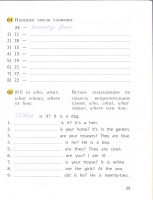 64 Напиши числа словами.
24 — twenty-four
1) 11 —
2) 28 —
3) 15 —
4) 30 —
5) 19 —
6) 21 —
7) 27 —
8) 22 —
65 Fill in who, what, what colour, where or how.
Вставь подходящие по смыслу вопросительные слова: who, what, what colour, where или how.
What is it? It is a dog.
1. is it? It's a hen.
2. is your hotel? It's in the garden.
3. are your trousers? They are blue.
4. is he? He is a boy.
5. are they? They are cows.
6. are you? I am ill.
7. is your house? It is white.
8. are the girls? At the zoo.
9. old is he? He is twenty-two.